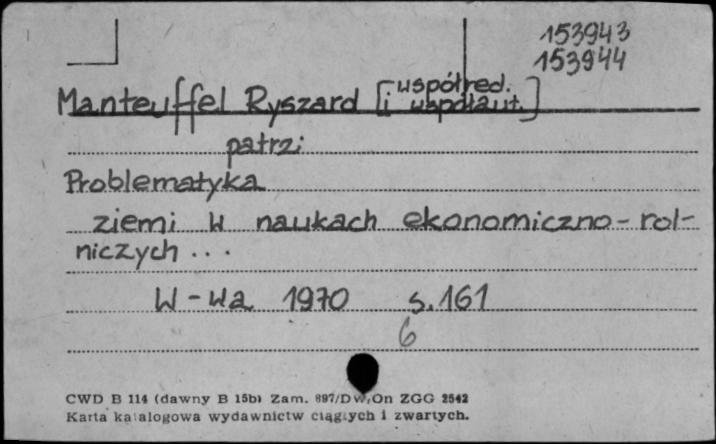 153943
153944
Manteuffel Ryszard [współred.
i współaut.]
patrz:
Problematyka
ziemi w naukach ekonomiczno-rol-
niczych...
W-wa 1970 s.161
6
CWD B 114 (dawny B 15b) Zam. 897/DW/On ZGG 2542
Karta katalogowa wydawnictw ciągłych i zwartych.